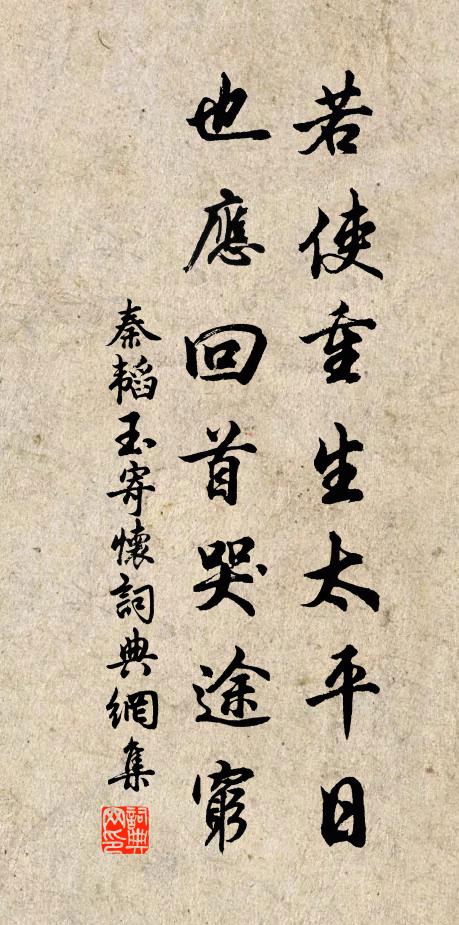 若使重生太平日
也應回首哭途窮
秦韜玉寄懷詞典網集
詞典網印